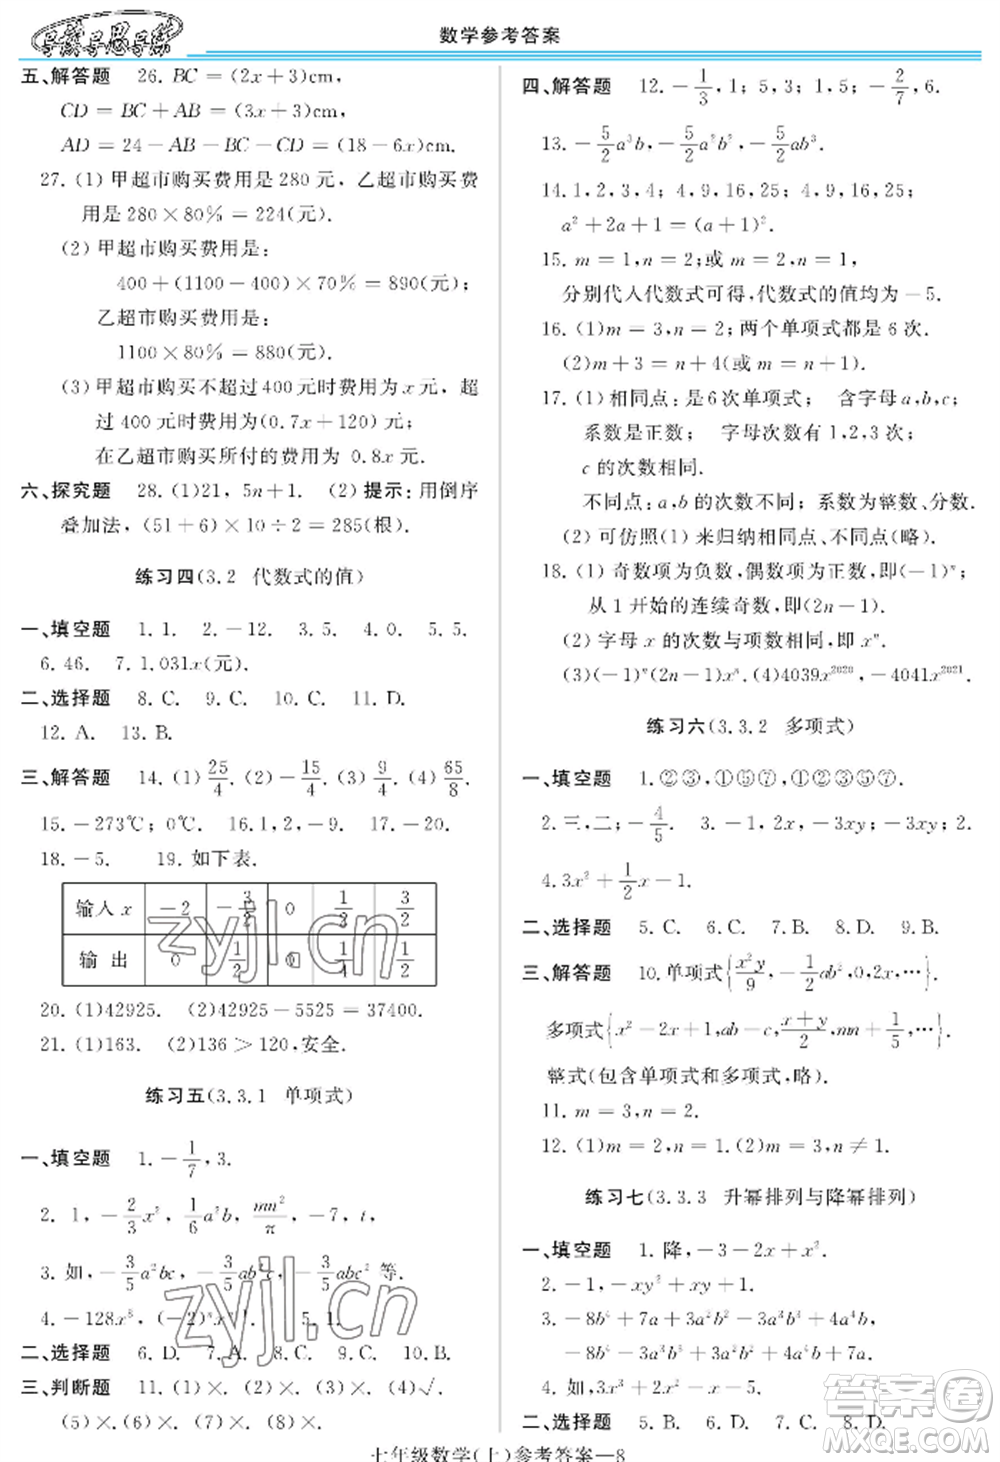 导读导思导练
数学参考答案
五、解答题 26. BC=(2x+3)cm,
CD=BC+AB=(3x+3)cm,
AD=24-AB-BC-CD=(18-6x)cm.
27. (1) 甲超市购买费用是 280 元,乙超市购买费
用是 280×80%=224(元).
(2) 甲超市购买费用是:
400+(1100-400)×70%=890(元);
乙超市购买费用是:
1100×80%=880(元).
(3) 甲超市购买不超过 400 元时费用为 x 元,超
过 400 元时费用为(0.7x+120)元;
在乙超市购买所付的费用为 0.8x 元.
六、探究题 28. (1)21, 5n+1. (2) 提示:用倒序
叠加法,(51+6)×10÷2=285(根).
练习四(3.2 代数式的值)
一、填空题 1. 1. 2. -12. 3. 5. 4. 0. 5. 5.
6. 46. 7. 1.031x(元).
二、选择题 8. C. 9. C. 10. C. 11. D.
12. A. 13. B.
三、解答题 14. (1) 25/4. (2) -15/4. (3) 9/4. (4) 65/8.
15. -273℃; 0℃. 16. 1, 2, -9. 17. -20.
18. -5. 19. 如下表.
输入 x -2 -3/2 0 1/2 3/2
输 出 0 1/2 1/4
20. (1)42925. (2)42925-5525=37400.
21. (1)163. (2)136>120,安全.
练习五(3.3.1 单项式)
一、填空题 1. -1/7, 3.
2. 1, -2/3x², 1/6a²b, mn²/π, -7, 1.
3. 如, -3/5a²bc, -3/5ab²c, -3/5abc² 等.
4. -128x⁸, (-2)ⁿ⁻¹xⁿ. 5. 1.
二、选择题 6. D. 7. A. 8. C. 9. C. 10. B.
三、判断题 11. (1)×. (2)×. (3)×. (4)√.
(5)×. (6)×. (7)×. (8)×.
四、解答题 12. -1/3, 1; 5, 3; 1, 5; -2/7, 6.
13. -5/2a³b, -5/2a²b², -5/2ab³.
14. 1, 2, 3, 4; 4, 9, 16, 25; 4, 9, 16, 25;
a²+2a+1=(a+1)².
15. m=1, n=2;或 m=2, n=1,
分别代入代数式可得,代数式的值均为-5.
16. (1)m=3, n=2;两个单项式都是 6 次.
(2)m+3=n+4(或 m=n+1).
17. (1) 相同点:是 6 次单项式; 含字母 a,b,c;
系数是正数; 字母次数有 1,2,3 次;
c 的次数相同.
不同点:a,b 的次数不同;系数为整数、分数.
(2) 可仿照(1)来归纳相同点和不同点(略).
18. (1) 奇数项为负数,偶数项为正数,即(-1)ⁿ;
从 1 开始的连续奇数,即(2n-1).
(2) 字母 x 的次数与项数相同,即 xⁿ.
(3)(-1)ⁿ(2n-1)xⁿ. (4)4039x²⁰²⁰, -4041x²⁰²¹.
练习六(3.3.2 多项式)
一、填空题 1. ②③,①⑤⑦,①②③⑤⑦.
2. 三,二; -4/5. 3. -1, 2x, -3xy; -3xy; 2.
4. 3x²+1/2x-1.
二、选择题 5. C. 6. C. 7. D. 8. D. 9. B.
三、解答题 10. 单项式{x²y/9, -1/2ab², 0, 2x, …}
多项式{x²-2x+1, ab-c, x+y/2, mn+1/5, …}
整式(包含单项式和多项式,略).
11. m=3, n=2.
12. (1)m=2, n=1. (2)m=3, n≠1.
练习七(3.3.3 升幂排列与降幂排列)
一、填空题 1. 降, -3-2x+x².
2. -1, -xy²+xy+1.
3. -8b⁴+7a+3a²b²-2a³b+4a⁴b⁴,
-8b⁴+4a⁴b⁴+3a²b²-2a³b+7a.
4. 如, 3x³+x²-x-5.
二、选择题 5. D. 6. D. 7. C. 8. B.
七年级数学(上)参考答案—8
zyjl.cn
zyjl.cn
答案圈
MXQE.COM